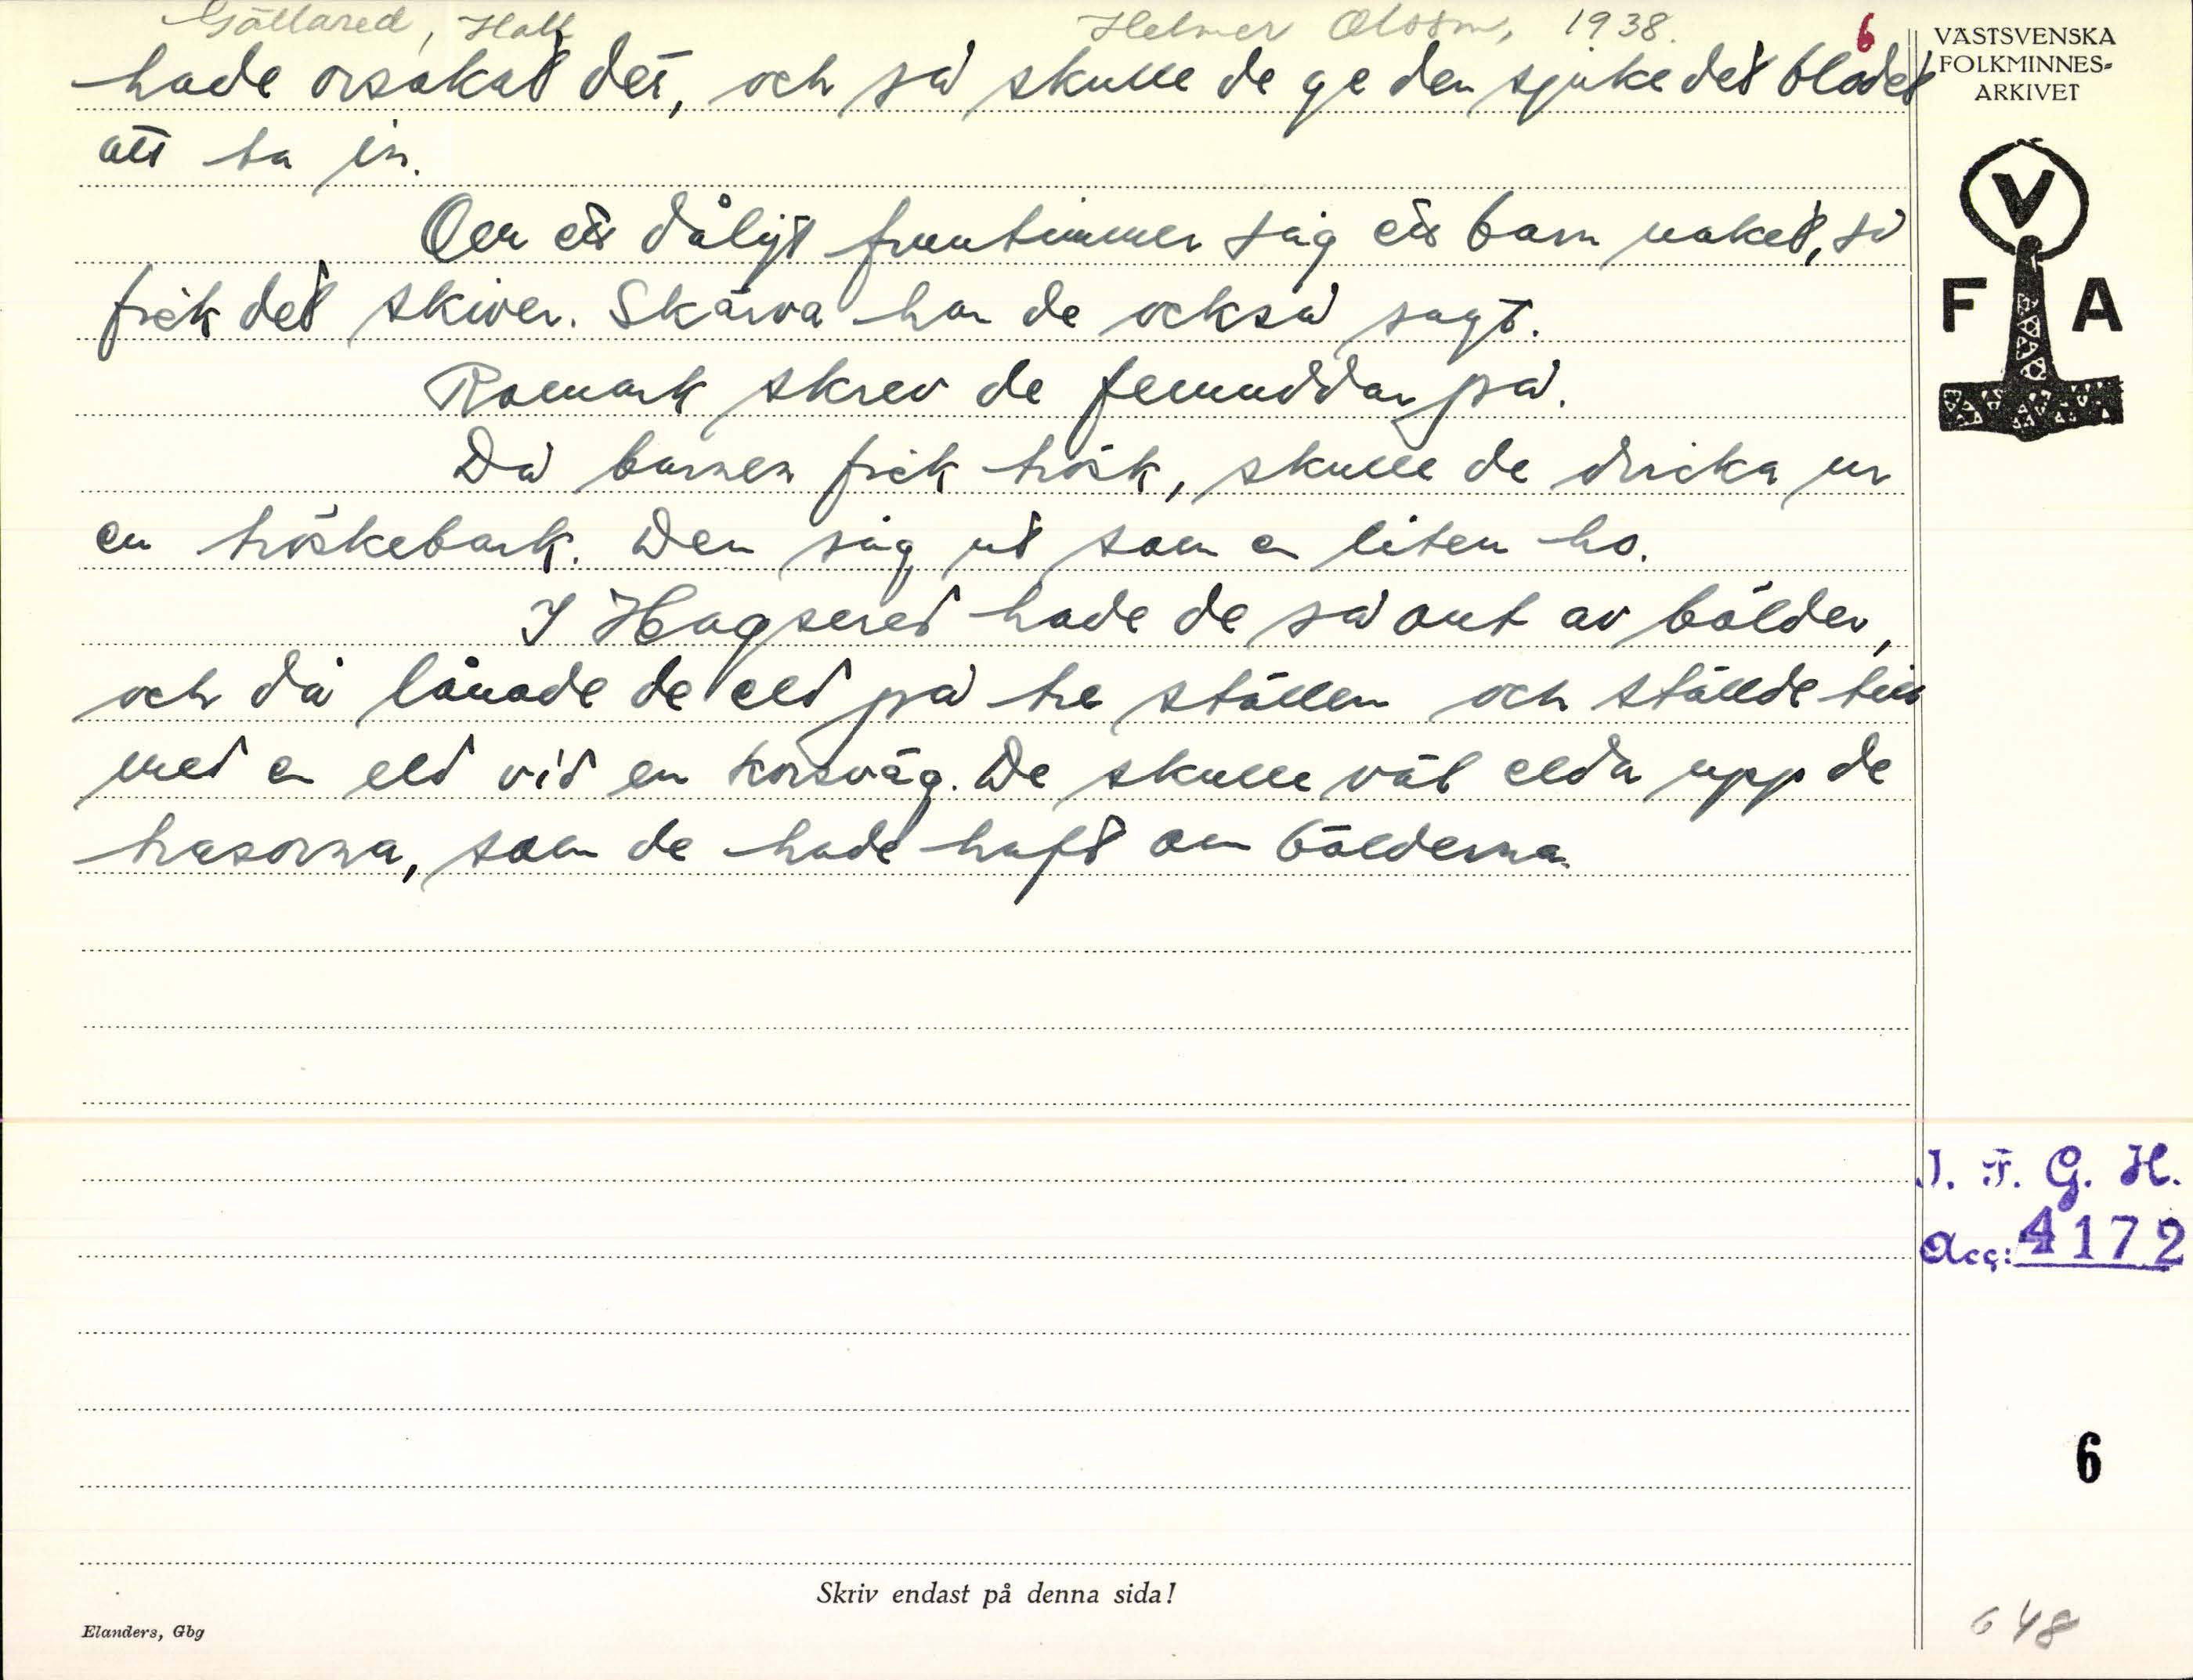 Gällared, Hall Helmer Olsson, 1938. 6
hade orsakat det, och så skulle de ge den sjuke det blodet
att ta in.
Om ett dåligt fruntimmer såg ett barn naket, så
fick det skiver. Skärva har de också sagt.
Romark skrev de femuddar på.
Då barnen fick trösk, skulle de dricka ur
en tröskebark. Den såg ut som en liten ho.
I Hagsered hade de så ont av bölder,
och då lånade de eld på tre ställen och ställde till
med en eld vid en korsväg. De skulle väl elda upp de
trasorna, som de hade haft om bölderna.
VÄSTSVENSKA
FOLKMINNES-
ARKIVET
V
F A
I. F. G. H.
Acc: 4172
6
Skriv endast på denna sida!
Elanders, Gbg
648